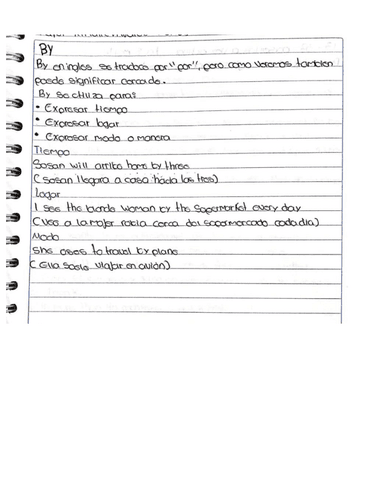 By
By en ingles se traduce por "por", pero como veremos tambien
puede significar cerca de.
By se utiliza para:
• Expresar tiempo
• Expresar lugar
• Expresar modo o manera
Tiempo
Susan will arribe home by three
(Susan llegara a casa hacia las tres)
Lugar
I see the blonde woman by the supermarket every day
(Veo a la mujer rubia cerca del supermercado cada dia)
Modo
She uses to travel by plane
(Ella suele viajar en avión)